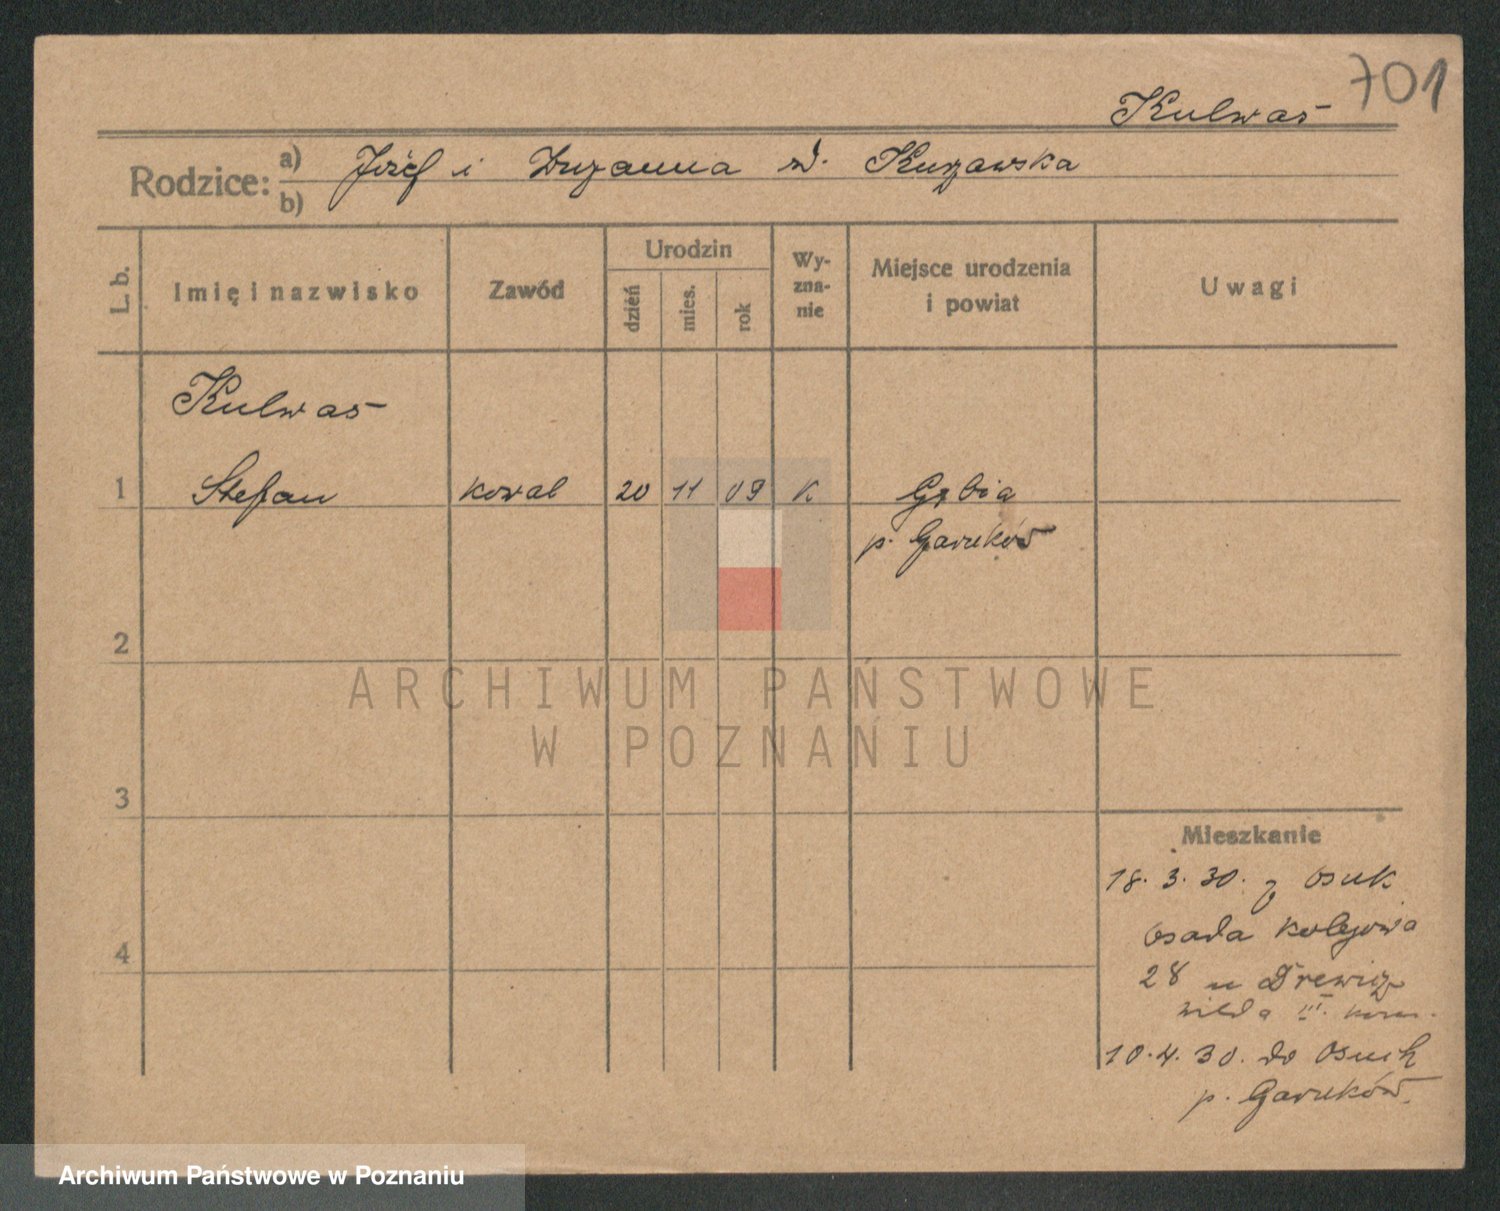 701
Kulwas
Rodzice: a) Józef i Zuzanna zd. Kurzawska
b)
L. b. Imię i nazwisko Zawód Urodzin dzień mies. rok Wy-zna-nie Miejsce urodzenia i powiat Uwagi
Kulwas
1 Stefan kowal 20 11 09 K Gębia
p. Garnków
2
ARCHIWUM PAŃSTWOWE
W POZNANIU
3
Mieszkanie
18.3.30. z Osuk
4 osada kolejowa
28 u Drewicz
wilda III. kom.
10.4.30. do Osuch
p. Garnków.
Archiwum Państwowe w Poznaniu